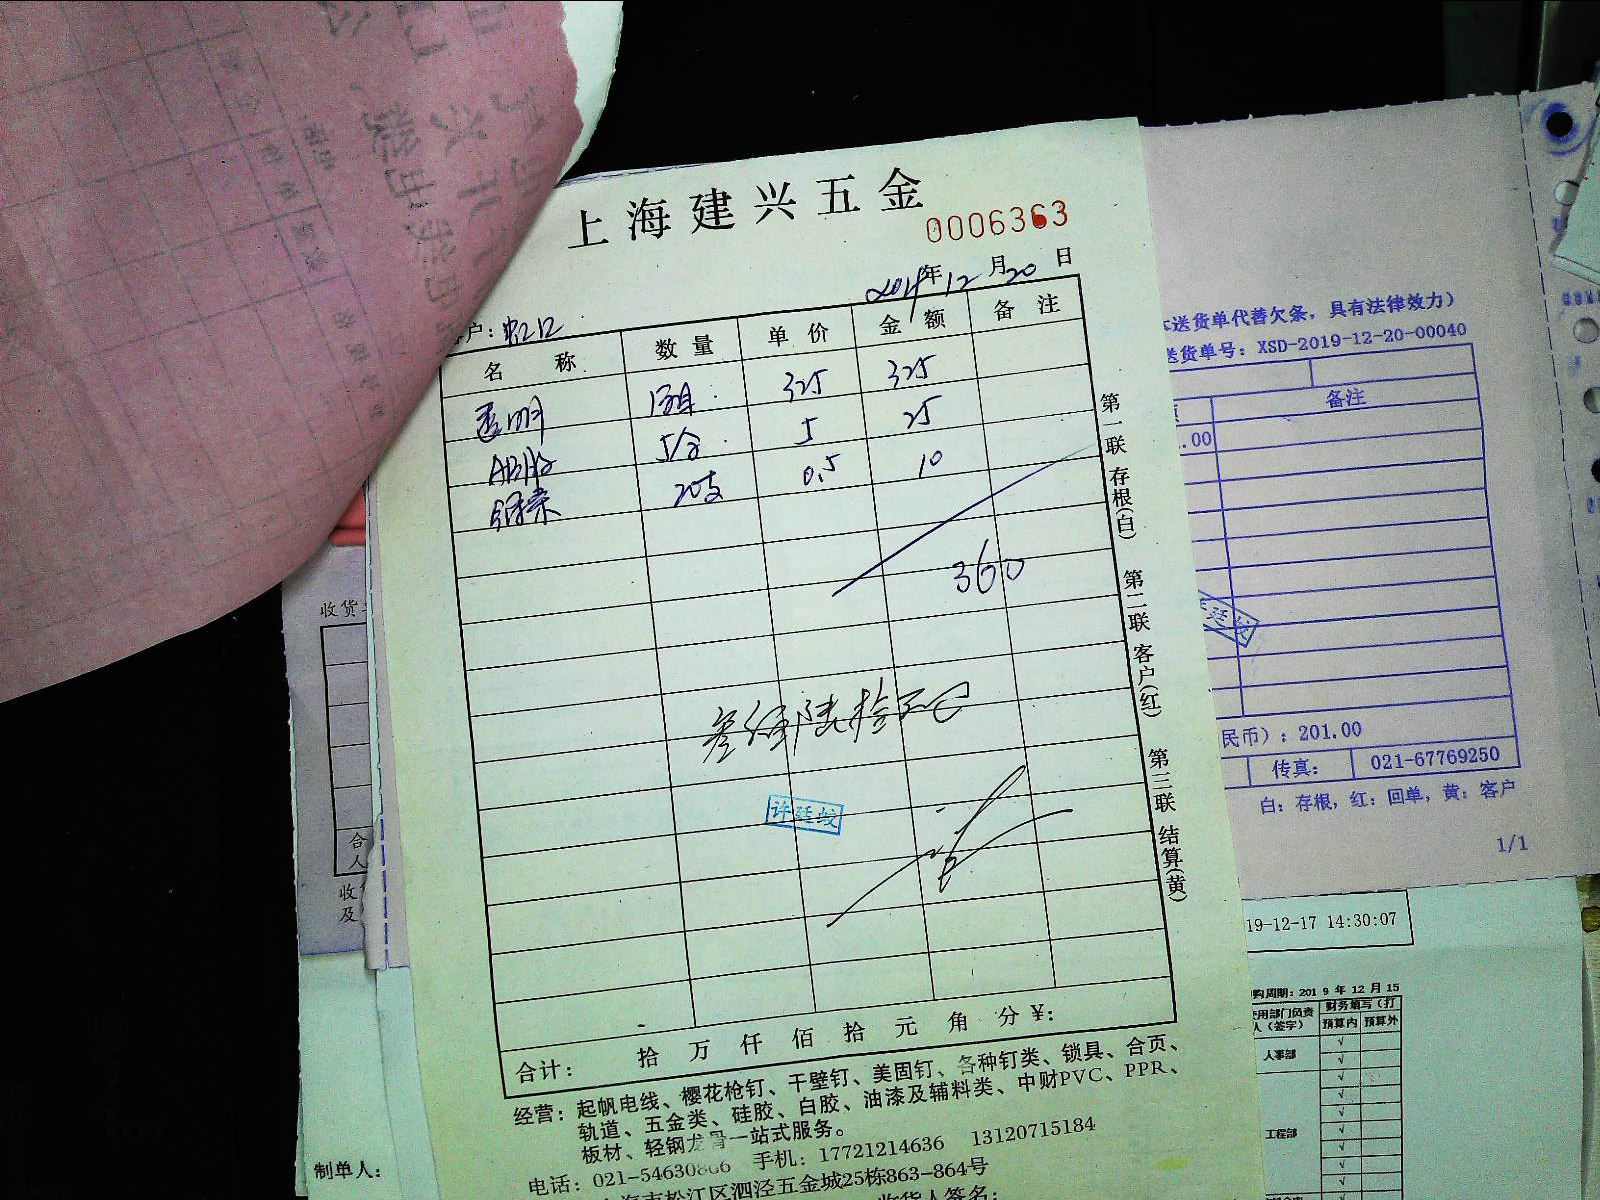 上海建兴五金
0006363
2019年12月20日
户:
名 称 数 量 单 价 金 额 备 注
透明 1箱 325 325
AB胶 5合 5 25
20支 0.5 10
360
叁佰陆拾元
许廷蛟
合计: 拾 万 仟 佰 拾 元 角 分 ¥:
经营:起帆电线、樱花枪钉、干壁钉、美固钉、各种钉类、锁具、合页、
轨道、五金类、硅胶、白胶、油漆及辅料类、中财PVC、PPR、
板材、轻钢龙骨一站式服务。
电话:021-54630866 手机:17721214636 13120715184
上海市松江区泗泾五金城25栋863-864号
收货人签名:
第一联 存根(白) 第二联 客户(红) 第三联 结算(黄)
送货单代替欠条,具有法律效力)
送货单号:XSD-2019-12-20-00040
备注
.00
廷蛟
民币):201.00
传真: 021-67769250
白:存根,红:回单,黄:客户
1/1
19-12-17 14:30:07
购周期:2019年12月15
使用部门负责人(签字) 财务填写(打
预算内 预算外
人事部
工程部
收货
合
人
收
及
制单人: